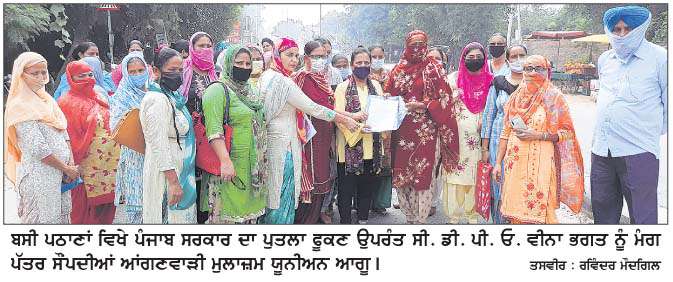 ਬਸੀ ਪਠਾਣਾਂ ਵਿਖੇ ਪੰਜਾਬ ਸਰਕਾਰ ਦਾ ਪੁਤਲਾ ਫੂਕਣ ਉਪਰੰਤ ਸੀ. ਡੀ. ਪੀ. ਓ. ਵੀਨਾ ਭਗਤ ਨੂੰ ਮੰਗ
ਪੱਤਰ ਸੌਂਪਦੀਆਂ ਆਂਗਣਵਾੜੀ ਮੁਲਾਜ਼ਮ ਯੂਨੀਅਨ ਆਗੂ। ਤਸਵੀਰ : ਰਵਿੰਦਰ ਮੌਦਗਿਲ